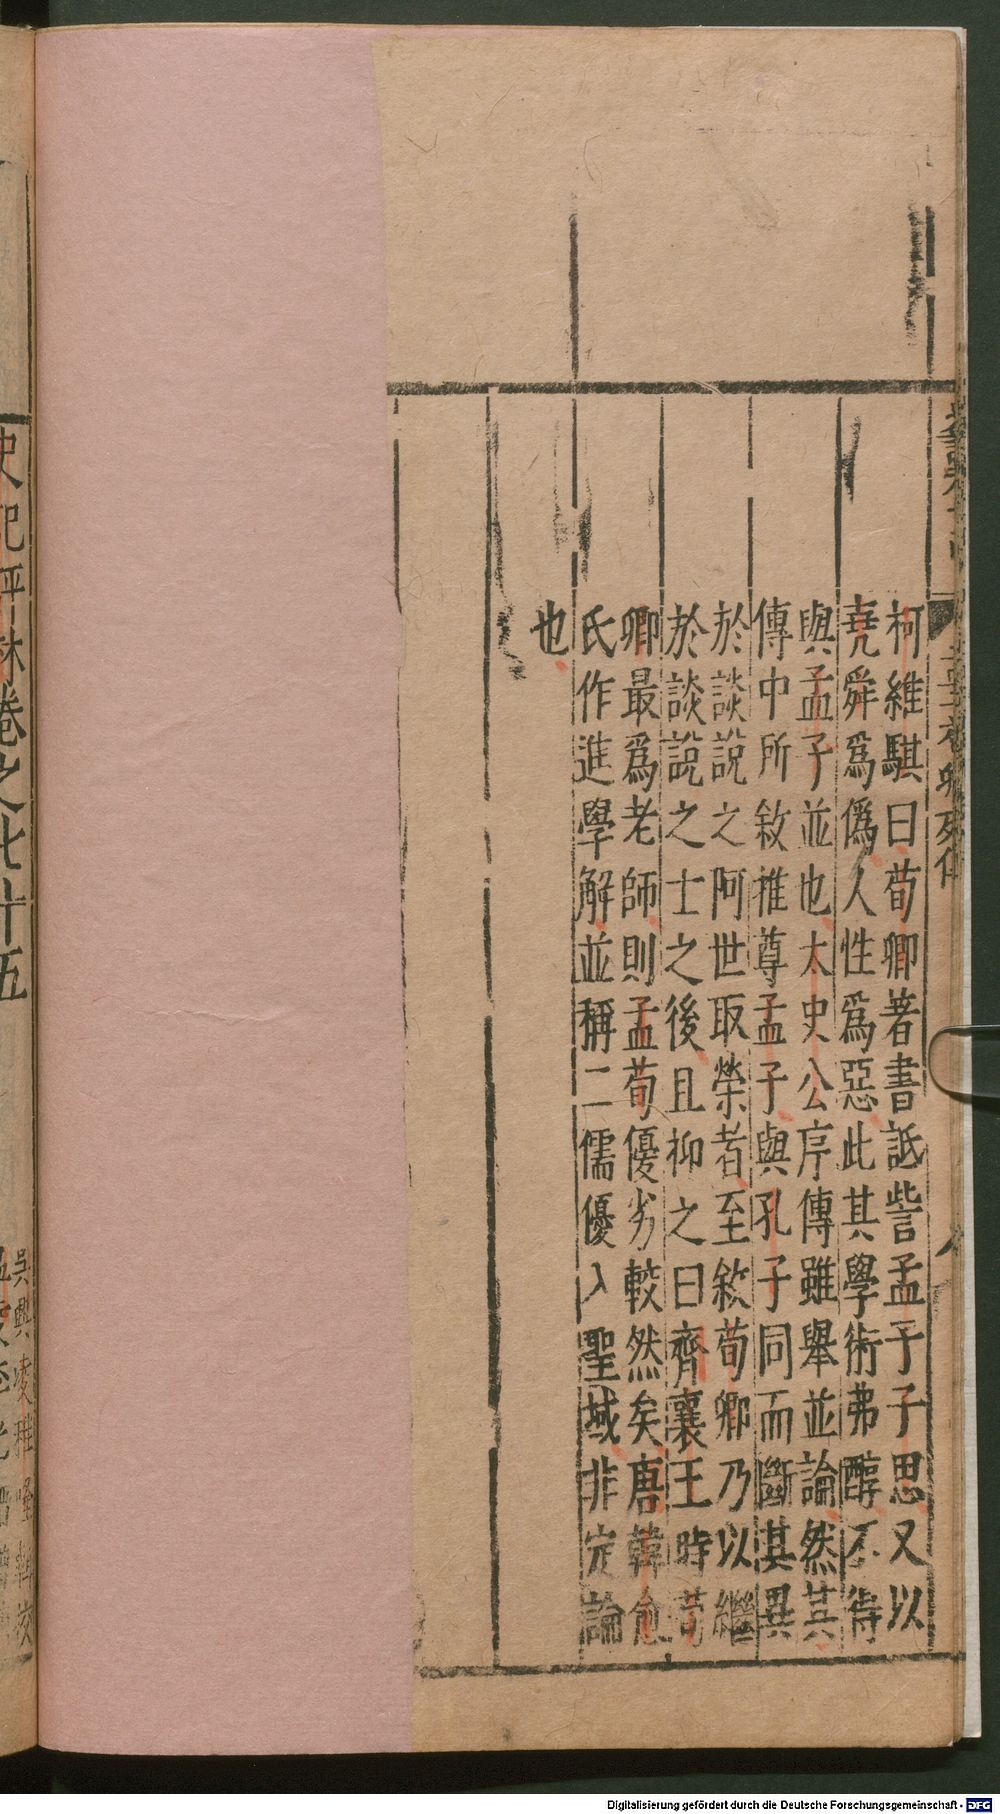 柯維騏曰荀卿著書詆訾孟子子思又以
堯舜爲僞人性爲惡此其學術弗醇不得
與孟子並也太史公序傳雖舉並論然其
傳中所敘推尊孟子與孔子同而斷其異
於談說之阿世取榮者至敘荀卿乃以繼
於談說之士之後且抑之曰齊襄王時荀
卿最爲老師則孟荀優劣較然矣唐韓愈
氏作進學解並稱二儒優入聖域非定論
也
史記評林卷之七十五
吳興凌稚隆輯校
Digitalisierung gefördert durch die Deutsche Forschungsgemeinschaft - DFG